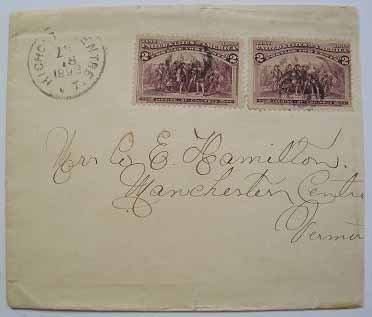 CENTRE
18
1893
2 UNITED STATES OF AMERICA 2
LANDING OF COLUMBUS
2 UNITED STATES OF AMERICA 2
LANDING OF COLUMBUS
Mrs C. E. Hamilton.
Manchester Centre
Vermon